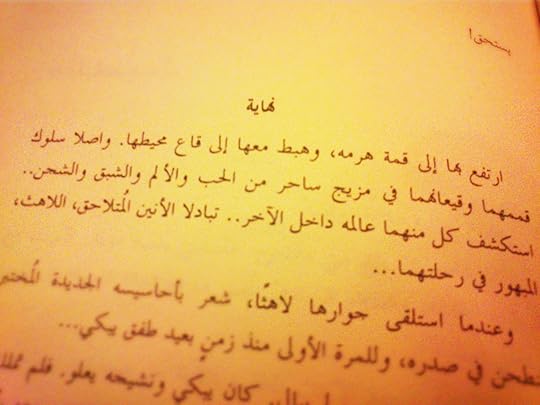 يستحق!
نهاية
ارتفع بها إلى قمة هرمه، وهبط معها إلى قاع محيطها. واصلا سلوك
قممهما وقيعانهما في مزيج ساحر من الحب والألم والشبق والشجن..
استكشف كل منهما عالمه داخل الآخر.. تبادلا الأنين المُتلاحق، اللاهث،
المبهور في رحلتهما...
وعندما استلقى جوارها لاهثًا، شعر بأحاسيسه الجديدة
تطحن في صدره، وللمرة الأولى منذ زمنٍ بعيد طفق يبكي...
كان يبكي ونشيجه يعلو. فلم